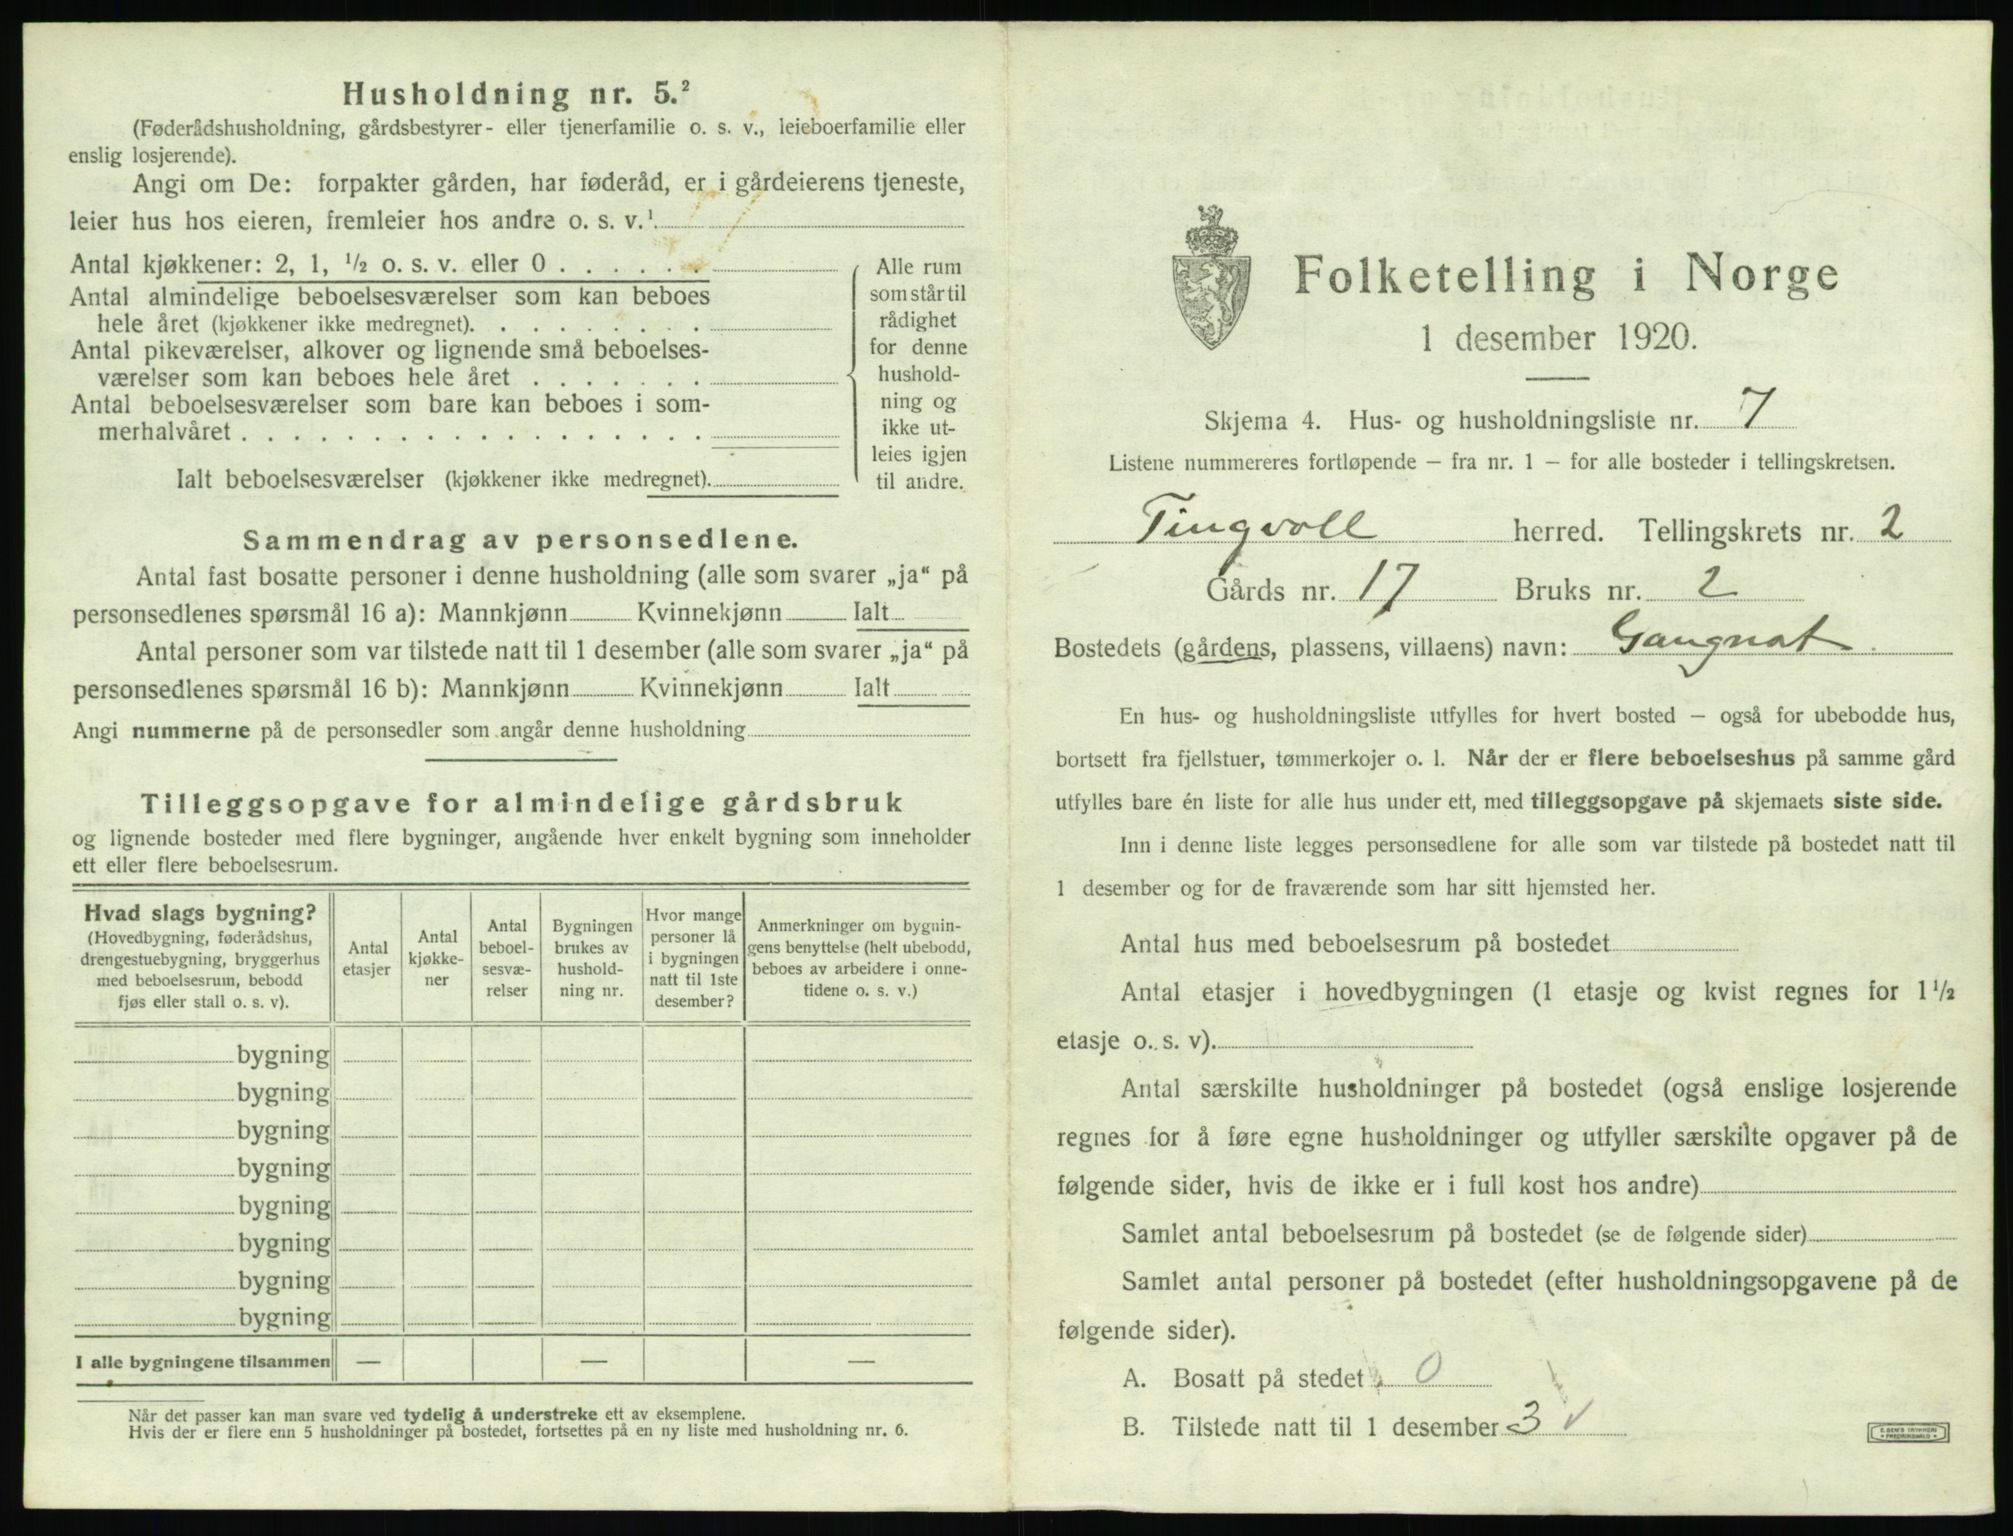 Husholdning nr. 5.²
(Føderådshusholdning, gårdsbestyrer- eller tjenerfamilie o. s. v., leieboerfamilie eller
enslig losjerende).
Angi om De: forpakter gården, har føderåd, er i gårdeierens tjeneste,
leier hus hos eieren, fremleier hos andre o. s. v.¹
Antal kjøkkener: 2, 1, ½ o. s. v. eller 0 . . . . . .
Antal almindelige beboelsesværelser som kan beboes
hele året (kjøkkener ikke medregnet). . . . . . . . .
Antal pikeværelser, alkover og lignende små beboelses-
værelser som kan beboes hele året . . . . . . .
Antal beboelsesværelser som bare kan beboes i som-
merhalvåret . . . . . . . . . . . . . . . . . .
Ialt beboelsesværelser (kjøkkener ikke medregnet).
Alle rum
som står til
rådighet
for denne
hushold-
ning og
ikke ut-
leies igjen
til andre.
Sammendrag av personsedlene.
Antal fast bosatte personer i denne husholdning (alle som svarer „ja“ på
personsedlenes spørsmål 16 a): Mannkjønn Kvinnekjønn Ialt
Antal personer som var tilstede natt til 1 desember (alle som svarer „ja“ på
personsedlenes spørsmål 16 b): Mannkjønn Kvinnekjønn Ialt
Angi nummerne på de personsedler som angår denne husholdning
Tilleggsopgave for almindelige gårdsbruk
og lignende bosteder med flere bygninger, angående hver enkelt bygning som inneholder
ett eller flere beboelsesrum.
Hvad slags bygning?
(Hovedbygning, føderådshus,
drengestuebygning, bryggerhus
med beboelsesrum, bebodd
fjøs eller stall o. s. v).
Antal
etasjer
Antal
kjøkke-
ner
Antal
beboel-
sesvæ-
relser
Bygningen
brukes av
hushold-
ning nr.
Hvor mange
personer lå
i bygningen
natt til 1ste
desember?
Anmerkninger om bygnin-
gens benyttelse (helt ubebodd,
beboes av arbeidere i onne-
tidene o. s. v.)
bygning
bygning
bygning
bygning
bygning
bygning
bygning
bygning
I alle bygningene tilsammen — — —
Når det passer kan man svare ved tydelig å understreke ett av eksemplene.
Hvis der er flere enn 5 husholdninger på bostedet, fortsettes på en ny liste med husholdning nr. 6.
Folketelling i Norge
1 desember 1920.
Skjema 4. Hus- og husholdningsliste nr. 7
Listene nummereres fortløpende — fra nr. 1 — for alle bosteder i tellingskretsen.
Tingvoll herred. Tellingskrets nr. 2
Gårds nr. 17 Bruks nr. 2
Bostedets (gårdens, plassens, villaens) navn: Gangnat
En hus- og husholdningsliste utfylles for hvert bosted — også for ubebodde hus,
bortsett fra fjellstuer, tømmerkojer o. l. Når der er flere beboelseshus på samme gård
utfylles bare én liste for alle hus under ett, med tilleggsopgave på skjemaets siste side.
Inn i denne liste legges personsedlene for alle som var tilstede på bostedet natt til
1 desember og for de fraværende som har sitt hjemsted her.
Antal hus med beboelsesrum på bostedet
Antal etasjer i hovedbygningen (1 etasje og kvist regnes for 1½
etasje o. s. v).
Antal særskilte husholdninger på bostedet (også enslige losjerende
regnes for å føre egne husholdninger og utfyller særskilte opgaver på de
følgende sider, hvis de ikke er i full kost hos andre)
Samlet antal beboelsesrum på bostedet (se de følgende sider)
Samlet antal personer på bostedet (efter husholdningsopgavene på de
følgende sider).
A. Bosatt på stedet 0
B. Tilstede natt til 1 desember 3 ✓